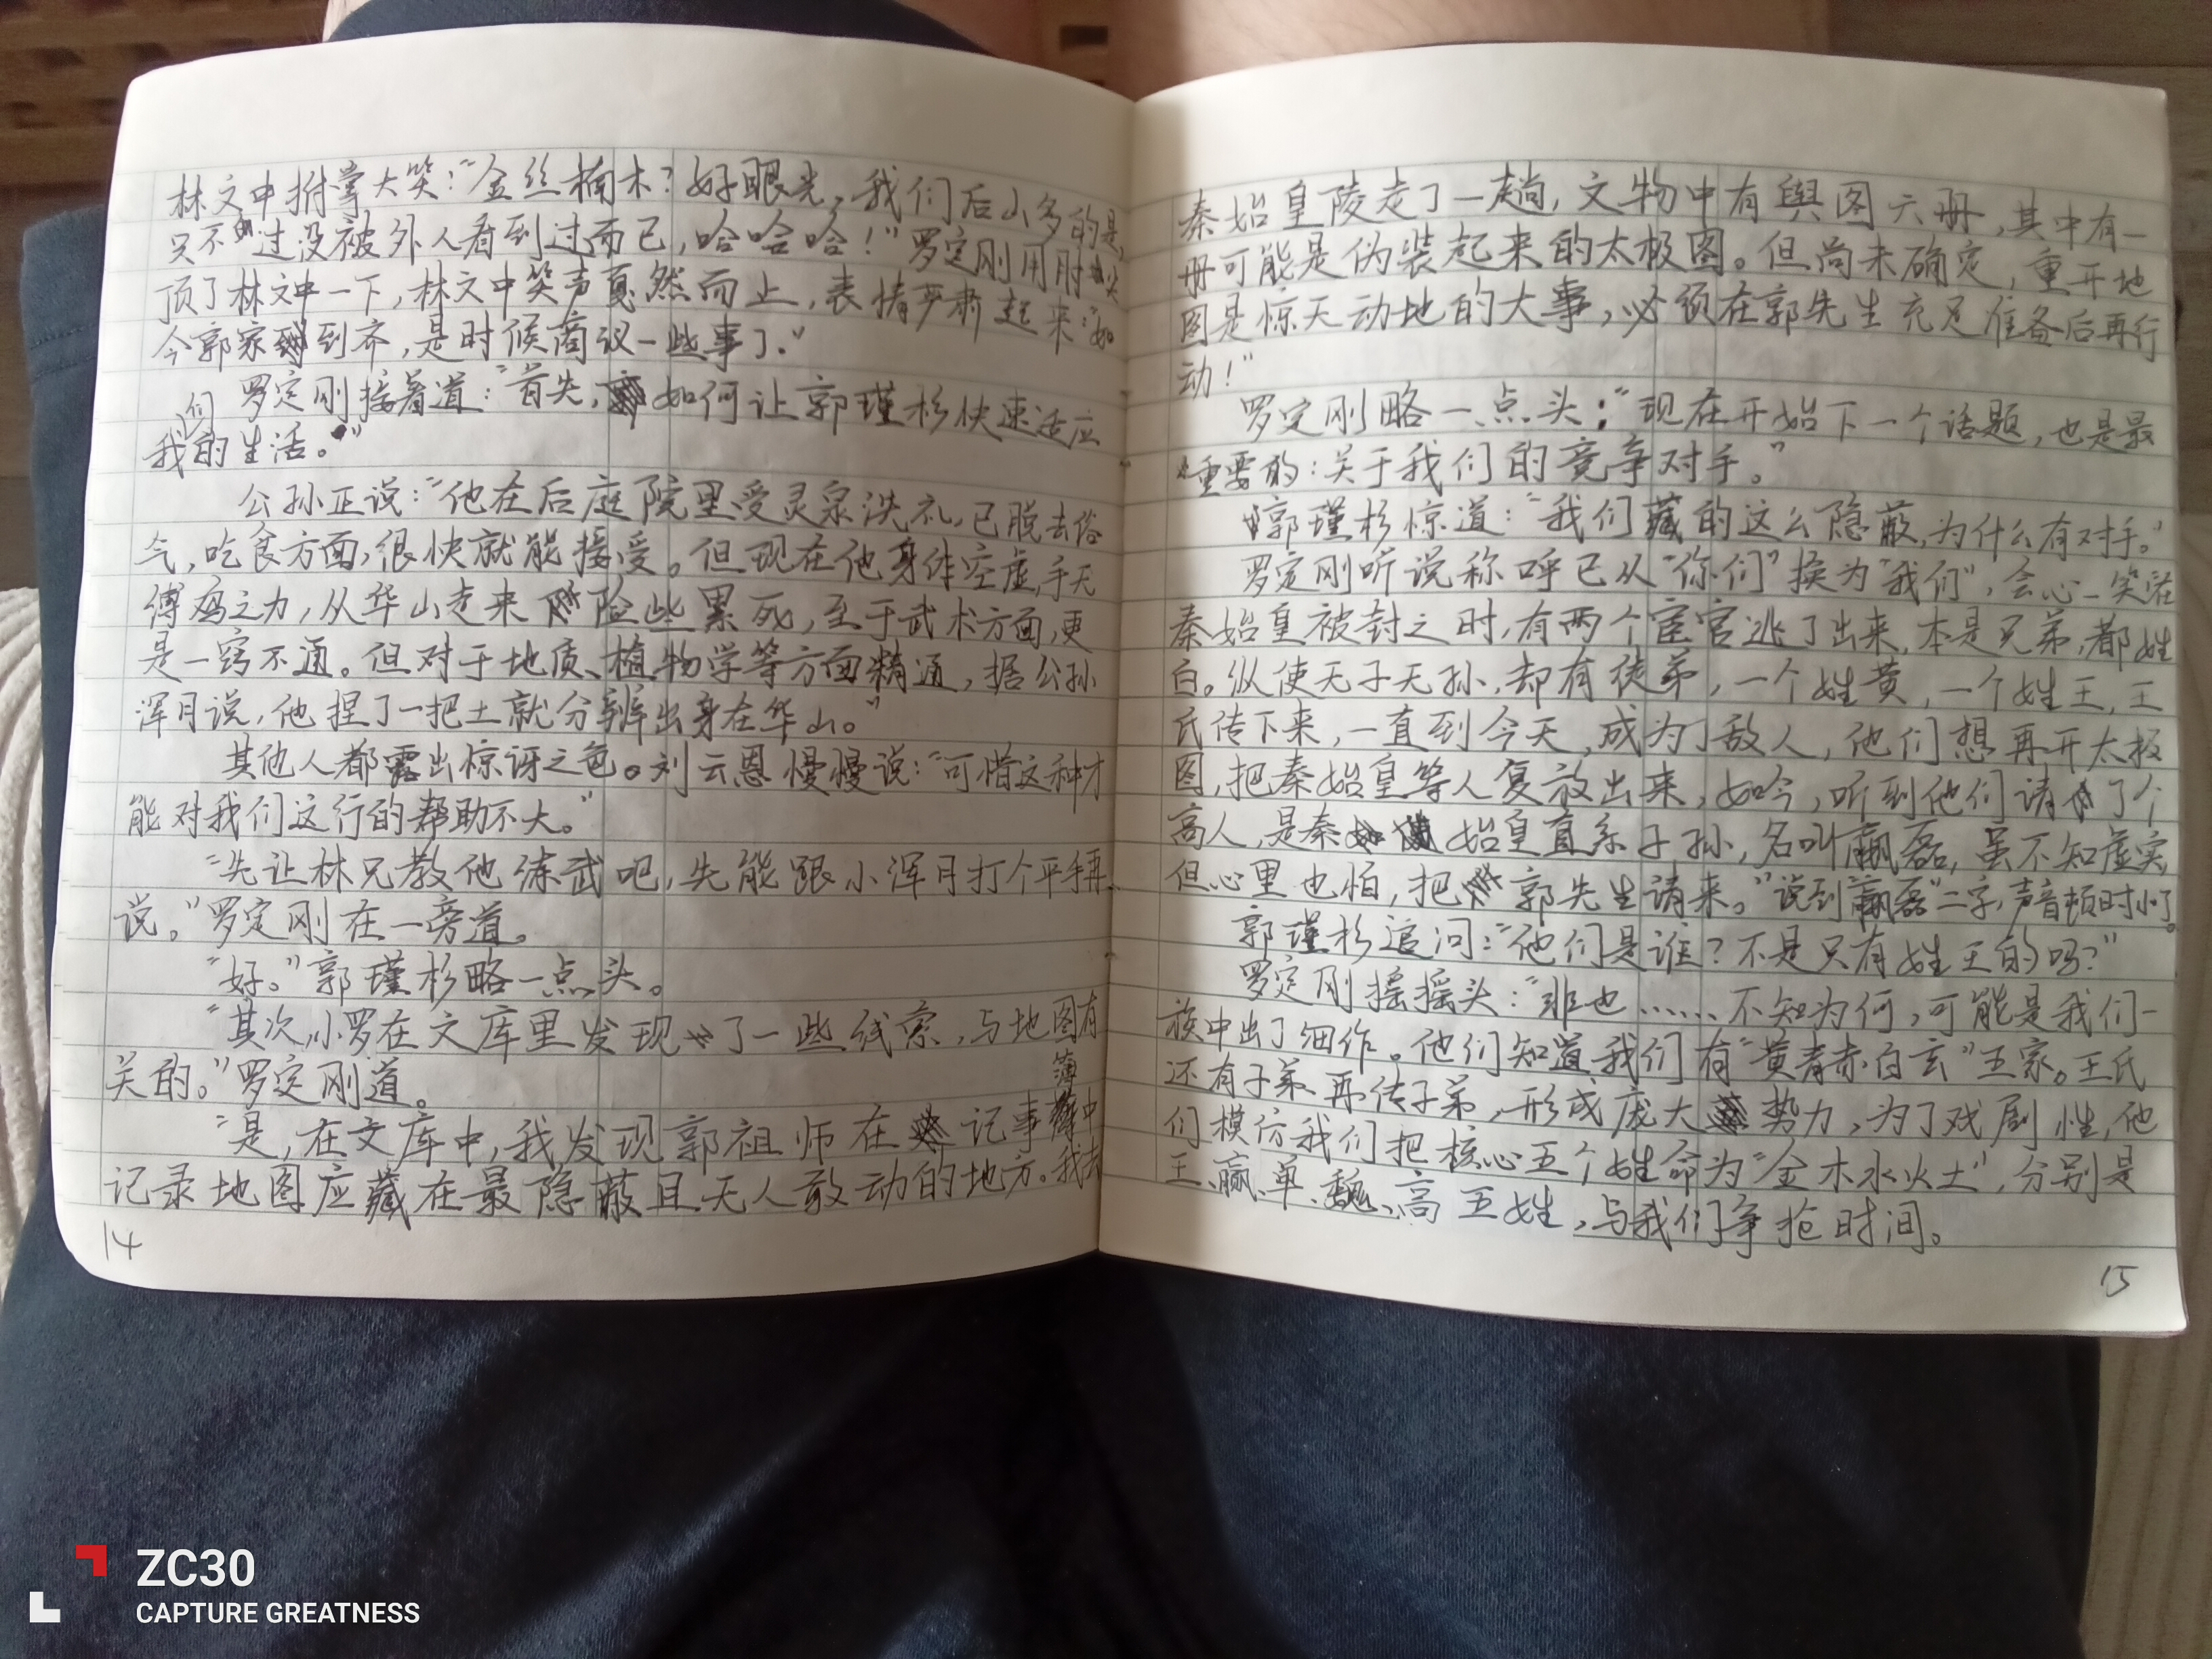 林文中拊掌大笑："金丝楠木?好眼光,我们后山多的是,
只不过没被外人看到过而已,哈哈哈!"罗定刚用肘尖
顶了林文中一下,林文中笑声戛然而止,表情严肃起来:"如
今郭家到齐,是时候商议一些事了."
罗定刚接着道:"首先,如何让郭瑾杉快速适应
我们的生活。"
公孙正说:"他在后庭院里受灵泉洗礼,已脱去俗
气,吃食方面,很快就能接受。但现在他身体空虚,手无
缚鸡之力,从华山走来险些累死,至于武术方面,更
是一窍不通。但对于地质、植物学等方面精通,据公孙
浑月说,他捏了一把土就分辨出身在华山。"
其他人都露出惊讶之色。刘云恩慢慢说:"可惜这种才
能对我们这行的帮助不大。"
"先让林兄教他练武吧,先能跟小浑月打个平手再
说。"罗定刚在一旁道。
"好。"郭瑾杉略一点头。
"其次,小罗在文库里发现了一些线索,与地图有
关的。"罗定刚道。
"是,在文库中,我发现郭祖师在记事簿中
记录地图应藏在最隐蔽且无人敢动的地方。我去
14
秦始皇陵走了一趟,文物中有舆图六册,其中有一
册可能是伪装起来的太极图。但尚未确定,重开地
图是惊天动地的大事,必须在郭先生充足准备后再行
动!"
罗定刚略一点头:"现在开始下一个话题,也是最
重要的:关于我们的竞争对手。"
郭瑾杉惊道:"我们藏的这么隐蔽,为什么有对手。"
罗定刚听说称呼已从"你们"换为"我们",会心一笑:"在
秦始皇被封之时,有两个宦官逃了出来,本是兄弟,都姓
白。纵使无子无孙,却有徒弟,一个姓黄,一个姓王,王
氏传下来,一直到今天,成为了敌人,他们想再开太极
图,把秦始皇等人复放出来,如今,听到他们请了个
高人,是秦始皇直系子孙,名叫嬴磊,虽不知虚实,
但心里也怕,把郭先生请来。"说到"嬴磊"二字,声音顿时小了。
郭瑾杉追问:"他们是谁?不是只有姓王的吗?"
罗定刚摇摇头:"非也……不知为何,可能是我们一
族中出了细作。他们知道我们有"黄青赤白玄"五家。王氏
还有子弟、再传子弟,形成庞大势力,为了戏剧性,他
们模仿我们把核心五个姓命为"金木水火土",分别是
王、嬴、单、魏、高五姓,与我们争抢时间。
15
ZC30
CAPTURE GREATNESS